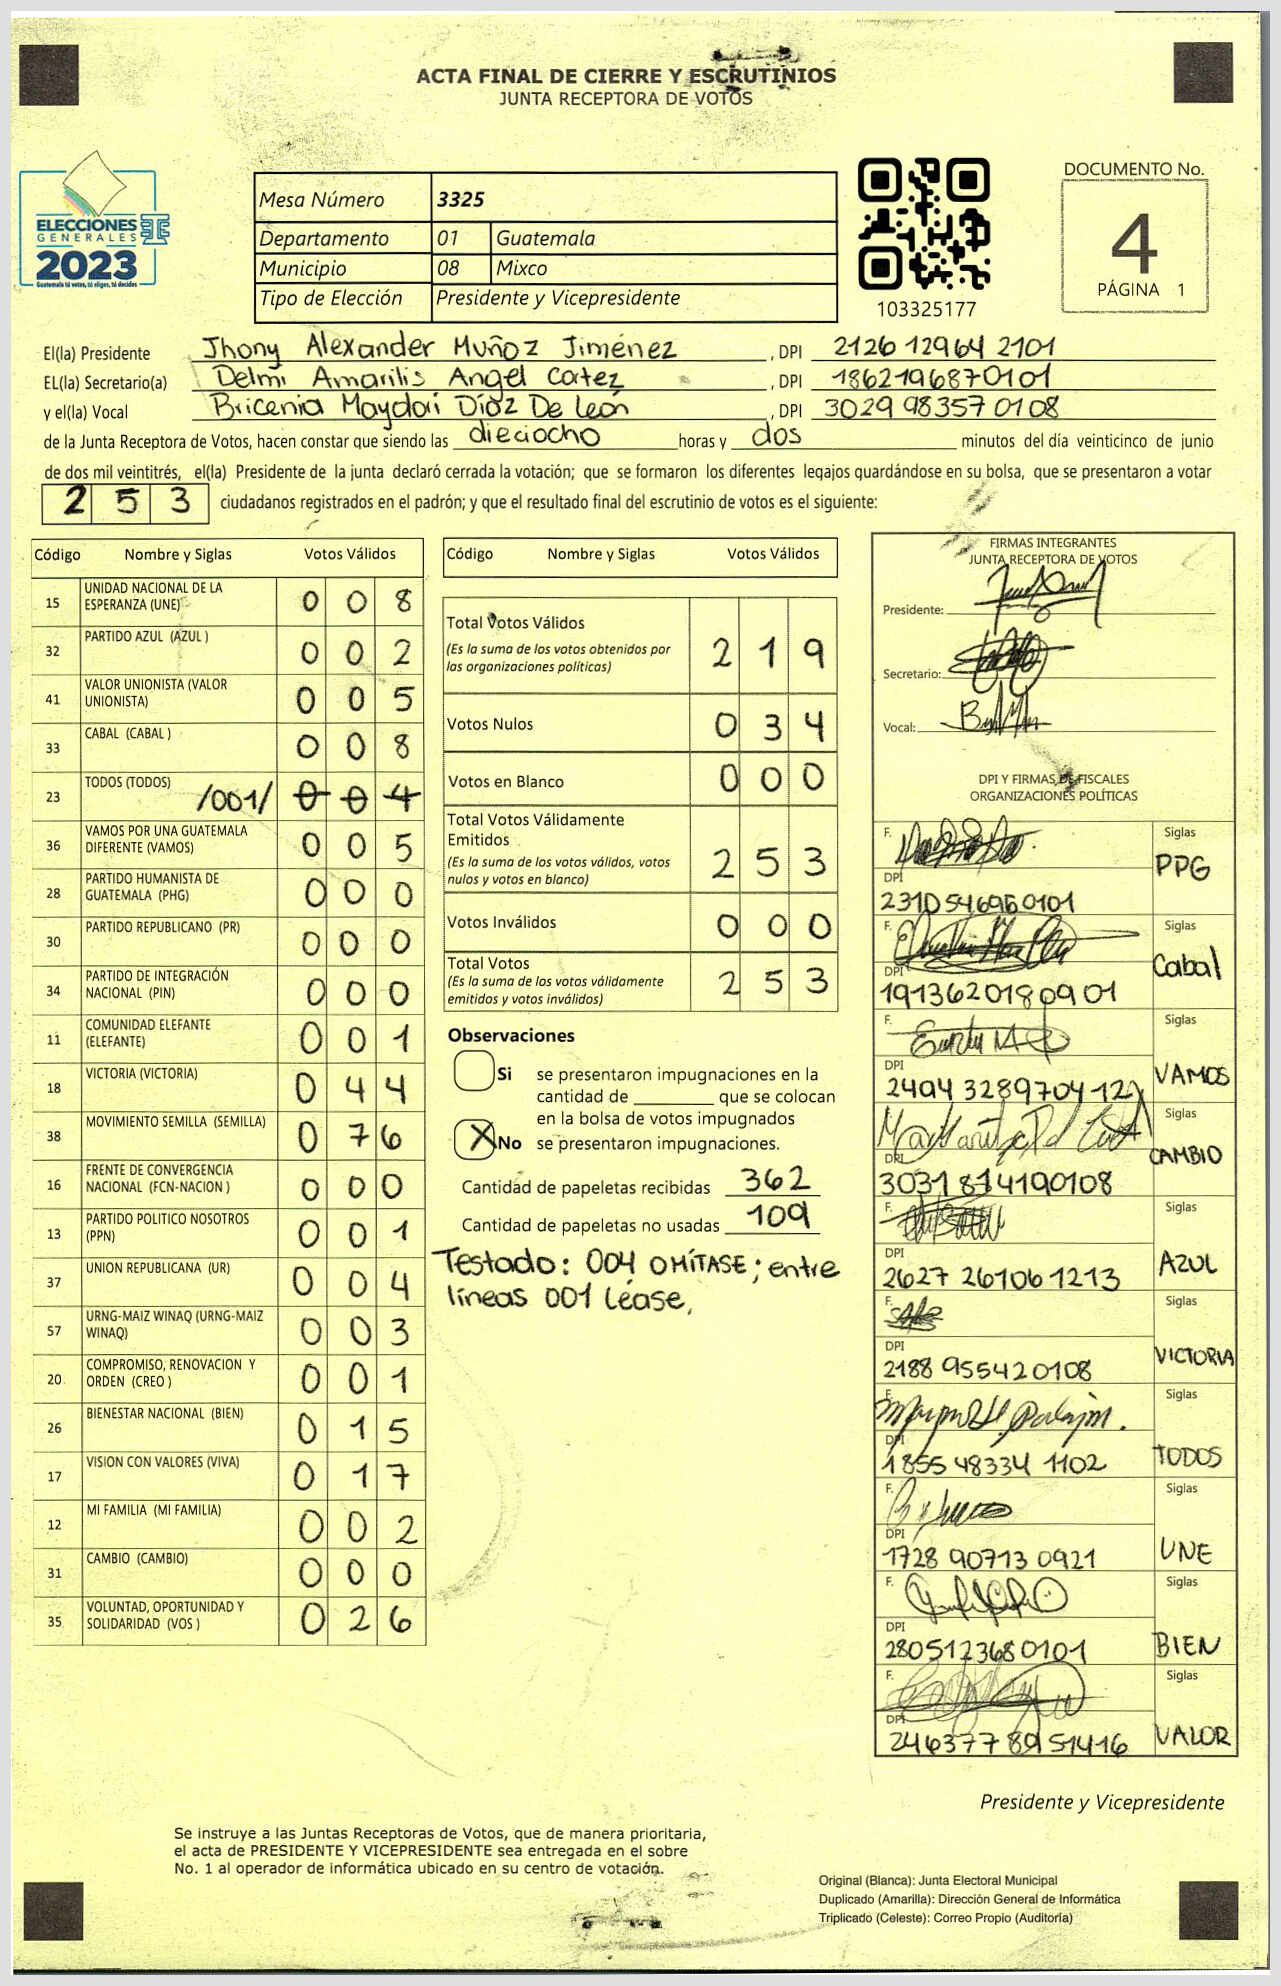 ACTA FINAL DE CIERRE Y ESCRUTINIOS
JUNTA RECEPTORA DE VOTOS
ELECCIONES
GENERALES
2023
Guatemala tú votas, tú eliges, tú decides
Mesa Número 3325
Departamento 01 Guatemala
Municipio 08 Mixco
Tipo de Elección Presidente y Vicepresidente
103325177
DOCUMENTO No.
4
PÁGINA 1
El(la) Presidente Jhony Alexander Muñoz Jiménez , DPI 2126 12964 2101
EL(la) Secretario(a) Delmi Amarilis Angel Cortez , DPI 1862196870101
y el(la) Vocal Bricenia Maydari Díaz De León , DPI 3029 98357 0108
de la Junta Receptora de Votos, hacen constar que siendo las dieciocho horas y dos minutos del día veinticinco de junio
de dos mil veintitrés, el(la) Presidente de la junta declaró cerrada la votación; que se formaron los diferentes legajos guardándose en su bolsa, que se presentaron a votar
2 5 3 ciudadanos registrados en el padrón; y que el resultado final del escrutinio de votos es el siguiente:
Código Nombre y Siglas Votos Válidos
15 UNIDAD NACIONAL DE LA ESPERANZA (UNE) 0 0 8
32 PARTIDO AZUL (AZUL ) 0 0 2
41 VALOR UNIONISTA (VALOR UNIONISTA) 0 0 5
33 CABAL (CABAL ) 0 0 8
23 TODOS (TODOS) /001/ 0 0 4
36 VAMOS POR UNA GUATEMALA DIFERENTE (VAMOS) 0 0 5
28 PARTIDO HUMANISTA DE GUATEMALA (PHG) 0 0 0
30 PARTIDO REPUBLICANO (PR) 0 0 0
34 PARTIDO DE INTEGRACIÓN NACIONAL (PIN) 0 0 0
11 COMUNIDAD ELEFANTE (ELEFANTE) 0 0 1
18 VICTORIA (VICTORIA) 0 4 4
38 MOVIMIENTO SEMILLA (SEMILLA) 0 7 6
16 FRENTE DE CONVERGENCIA NACIONAL (FCN-NACION ) 0 0 0
13 PARTIDO POLITICO NOSOTROS (PPN) 0 0 1
37 UNION REPUBLICANA (UR) 0 0 4
57 URNG-MAIZ WINAQ (URNG-MAIZ WINAQ) 0 0 3
20 COMPROMISO, RENOVACION Y ORDEN (CREO ) 0 0 1
26 BIENESTAR NACIONAL (BIEN) 0 1 5
17 VISION CON VALORES (VIVA) 0 1 7
12 MI FAMILIA (MI FAMILIA) 0 0 2
31 CAMBIO (CAMBIO) 0 0 0
35 VOLUNTAD, OPORTUNIDAD Y SOLIDARIDAD (VOS ) 0 2 6
Código Nombre y Siglas Votos Válidos
Total Votos Válidos 2 1 9
(Es la suma de los votos obtenidos por
las organizaciones políticas)
Votos Nulos 0 3 4
Votos en Blanco 0 0 0
Total Votos Válidamente
Emitidos 2 5 3
(Es la suma de los votos válidos, votos
nulos y votos en blanco)
Votos Inválidos 0 0 0
Total Votos 2 5 3
(Es la suma de los votos válidamente
emitidos y votos inválidos)
Observaciones
Si se presentaron impugnaciones en la
cantidad de ________ que se colocan
en la bolsa de votos impugnados
X No se presentaron impugnaciones.
Cantidad de papeletas recibidas 362
Cantidad de papeletas no usadas 109
Testado: 004 OMÍTASE; entre
líneas 001 Léase,
FIRMAS INTEGRANTES
JUNTA RECEPTORA DE VOTOS
Presidente:
Secretario:
Vocal:
DPI Y FIRMAS DE FISCALES
ORGANIZACIONES POLÍTICAS
F. Siglas
PPG
DPI
F. Siglas
Cabal
DPI
1913620180901
F. Siglas
VAMOS
DPI
2494 32897 0412
F. Siglas
CAMBIO
DPI
3031 814190108
F. Siglas
AZUL
DPI
2627 26106 1213
F. Siglas
VICTORIA
DPI
2188 955420108
F. Siglas
TODOS
DPI
1855 48334 1102
F. Siglas
UNE
DPI
1728 90713 0921
F. Siglas
BIEN
DPI
2805123680101
F. Siglas
VALOR
DPI
246377 8951416
Presidente y Vicepresidente
Se instruye a las Juntas Receptoras de Votos, que de manera prioritaria,
el acta de PRESIDENTE Y VICEPRESIDENTE sea entregada en el sobre
No. 1 al operador de informática ubicado en su centro de votación.
Original (Blanca): Junta Electoral Municipal
Duplicado (Amarilla): Dirección General de Informática
Triplicado (Celeste): Correo Propio (Auditoría)